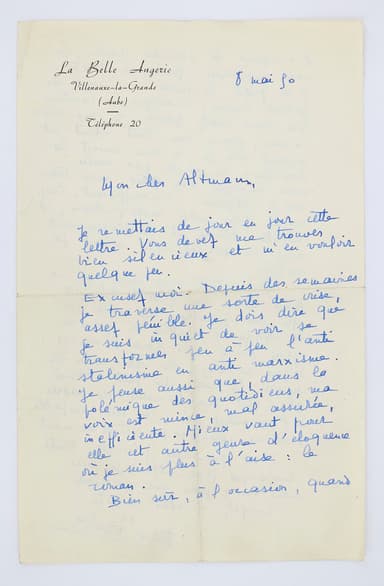 La Belle Angerie
Villenauxe-la-Grande
(Aube)
Téléphone 20
8 mai 50
Mon cher Altmann,
Je remettais de jour en jour cette
lettre. Vous devez me trouver
bien silencieux et m'en vouloir
quelque peu.
Excusez moi. Depuis des semaines
je traverse une sorte de crise,
assez pénible. Je dois dire que
je suis inquiet de voir se
transformer peu à peu l'anti
stalinisme en anti marxisme.
Je pense aussi que, dans la
polémique des quotidiens, ma
voix est mince, mal assurée,
inefficiente. Mieux vaut pour
elle cet autre genre d'éloquence
où je suis plus à l'aise : le
roman.
Bien sûr, à l'occasion, quand